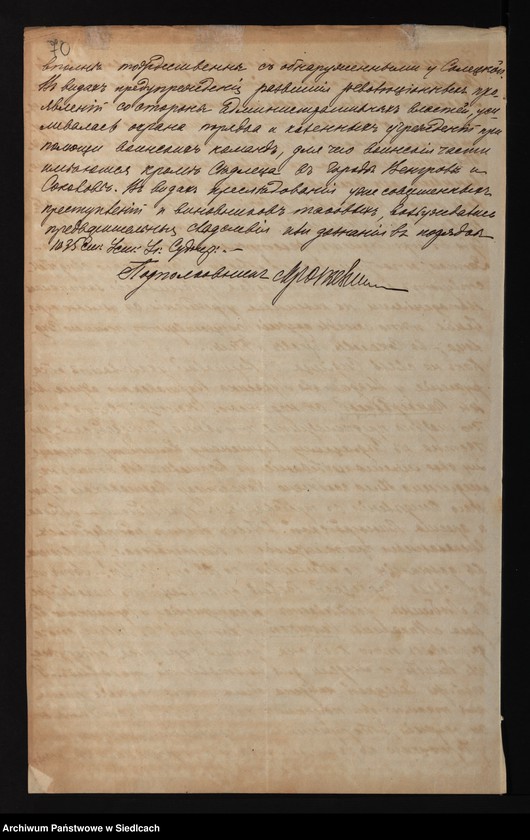 70
вполнѣ тождественны съ обнаруженными у Селецкой.
Въ видахъ предупрежденія развитія революціонныхъ про-
явленій со стороны Административныхъ властей, уси-
ливалась охрана порядка и казенныхъ учрежденій при
помощи воинскихъ командъ, для чего воинскія части
имѣются кромѣ Сѣдлеца въ городѣ Венгровѣ и
Соколовѣ. Въ видахъ преслѣдованія уже совершенныхъ
преступленій и виновниковъ таковыхъ, возбуждались
предварительныя дознанія въ порядкѣ
1035 ст. Уст. Уг. Судопр. —
Подполковникъ
Archiwum Państwowe w Siedlcach